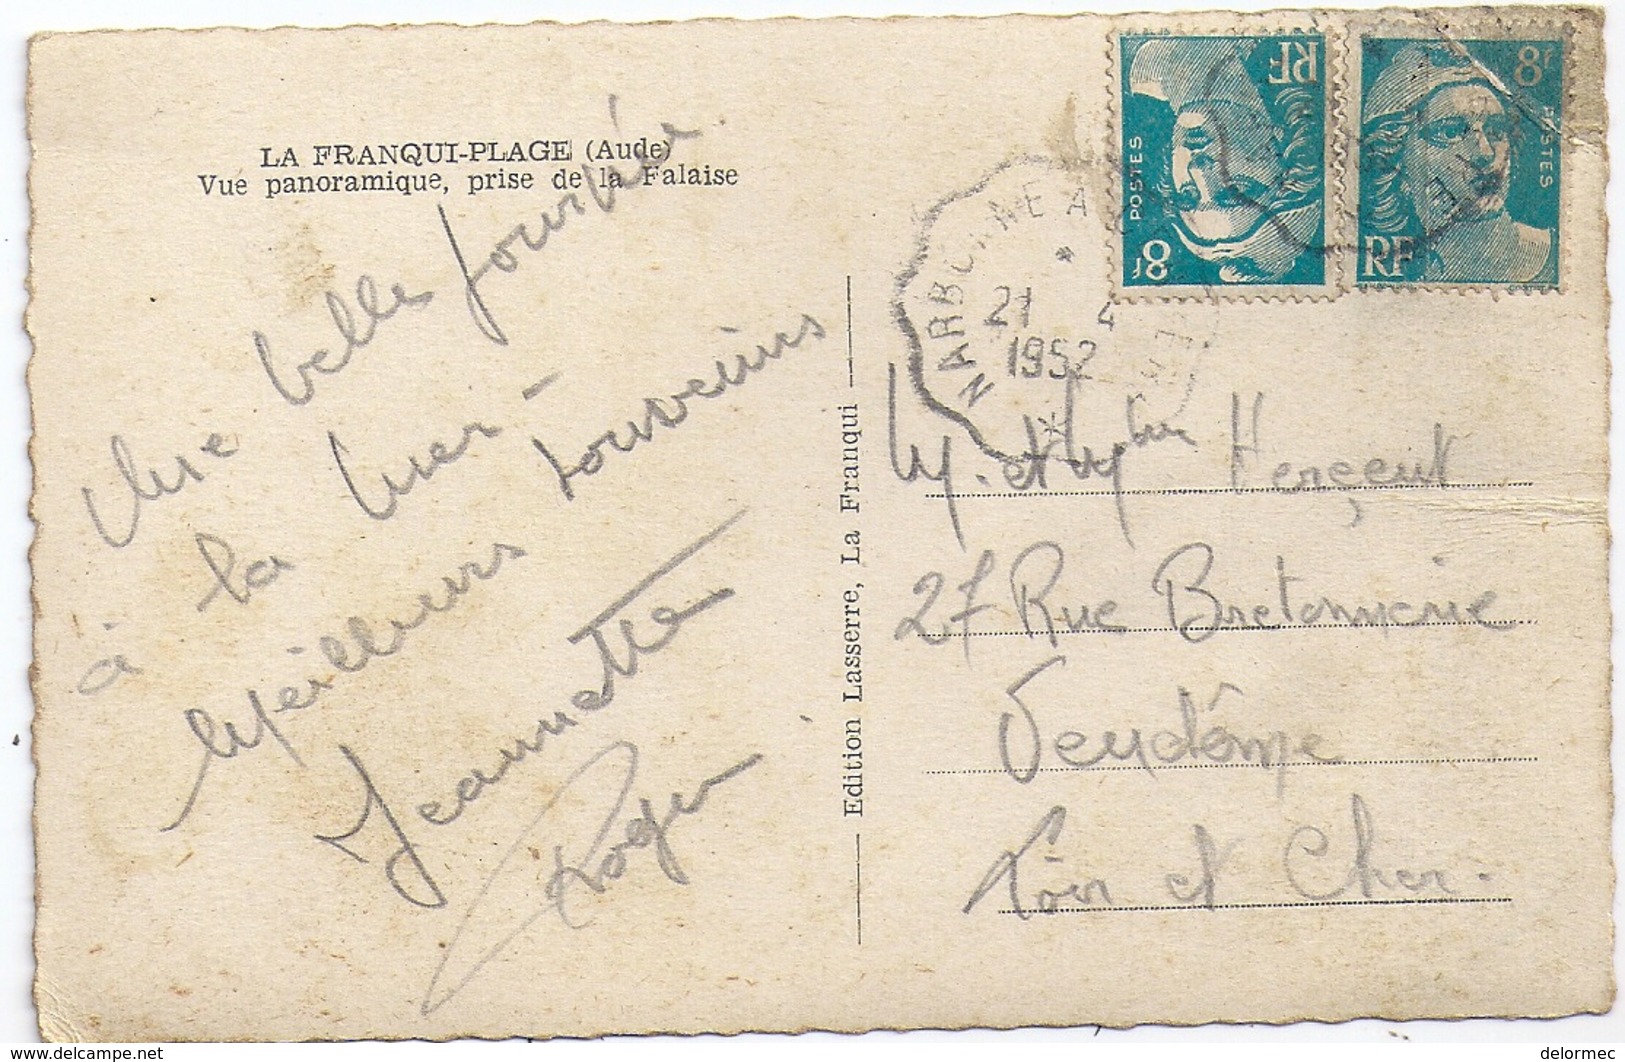 LA FRANQUI-PLAGE (Aude)
Vue panoramique, prise de la Falaise
Une belle journée
à la mer -
Meilleurs souvenirs
Jeannette
Roger
Edition Lasserre, La Franqui
RF
POSTES
8F
8F
POSTES
RF
NARBONNE A
21 4
1952
M. et Mme Herçent
27 Rue Bretonnerie
Vendôme
Loir et Cher.
delormec